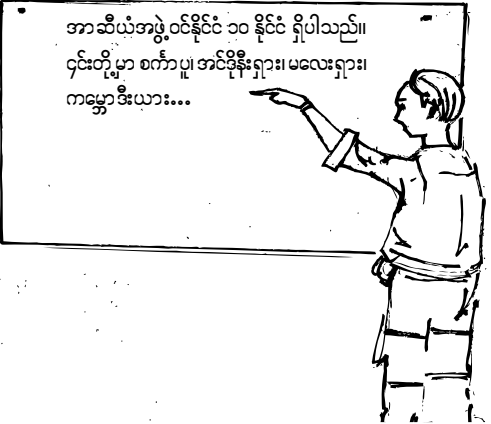 အာဆီယံအဖွဲ့ဝင်နိုင်ငံ ၁၀ နိုင်ငံ ရှိပါသည်။
၎င်းတို့မှာ စင်္ကာပူ၊ အင်ဒိုနီးရှား၊ မလေးရှား၊
ကမ္ဘောဒီးယား...